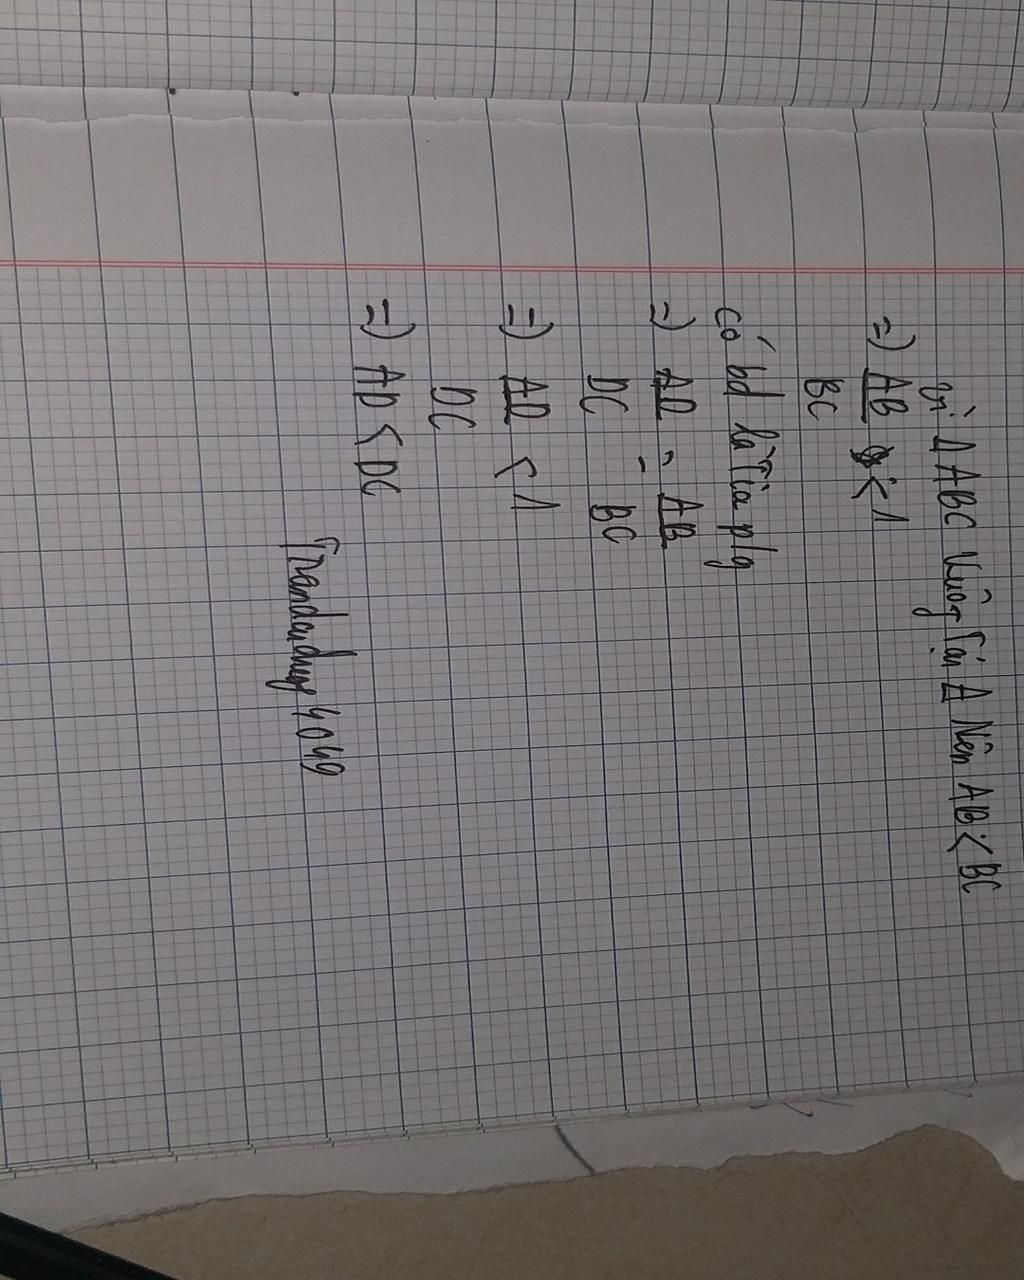 vì Δ ABC vuôg tại A Nên AB < BC
=) AB/BC < 1
có bd là tia p/g
=) AD/DC = AB/BC
=) AD/DC < 1
=) AD < DC
Trandaidung4049